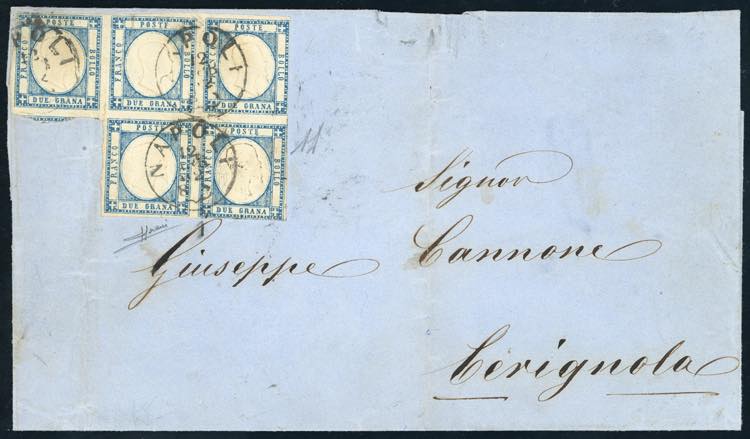 POSTE POSTE POSTE
FRANCO BOLLO FRANCO BOLLO FRANCO BOLLO
DUE GRANA DUE GRANA DUE GRANA
POSTE POSTE
FRANCO BOLLO FRANCO BOLLO
DUE GRANA DUE GRANA
NAPOLI
11
Signor
Giuseppe Cannone
Cerignola